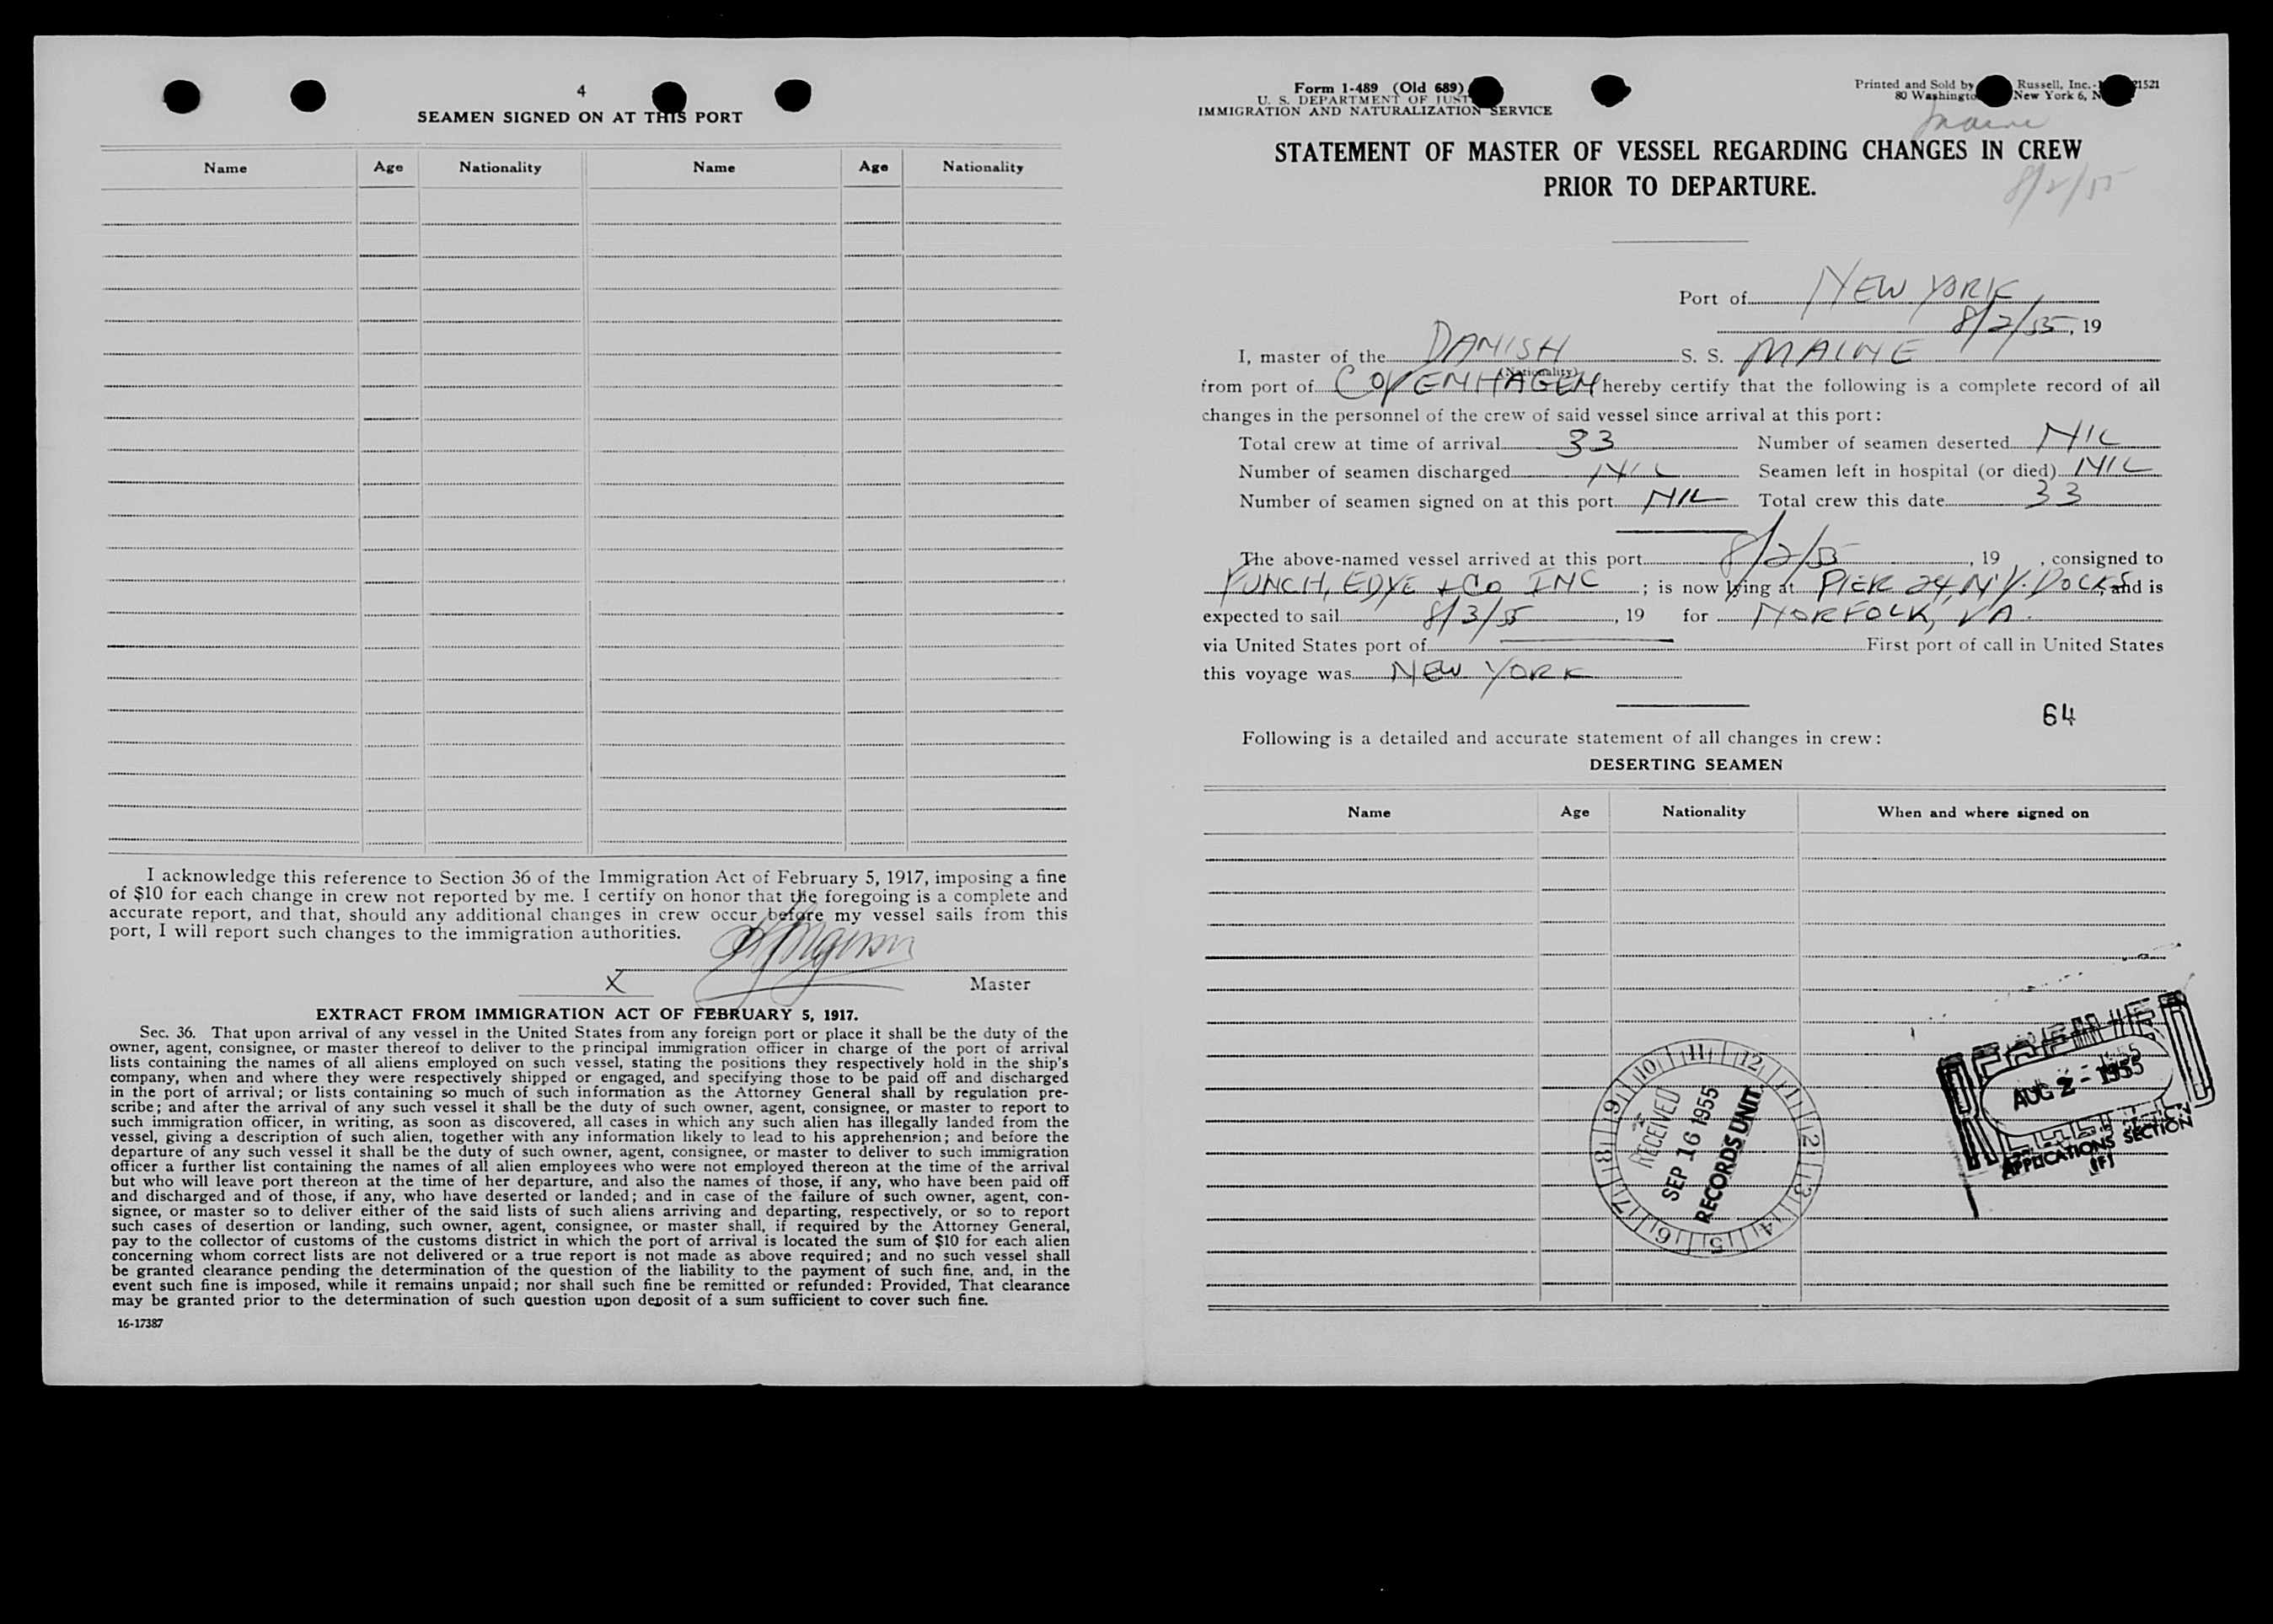 4
SEAMEN SIGNED ON AT THIS PORT
Name Age Nationality Name Age Nationality
I acknowledge this reference to Section 36 of the Immigration Act of February 5, 1917, imposing a fine
of $10 for each change in crew not reported by me. I certify on honor that the foregoing is a complete and
accurate report, and that, should any additional changes in crew occur before my vessel sails from this
port, I will report such changes to the immigration authorities.
X
Master
EXTRACT FROM IMMIGRATION ACT OF FEBRUARY 5, 1917.
Sec. 36. That upon arrival of any vessel in the United States from any foreign port or place it shall be the duty of the
owner, agent, consignee, or master thereof to deliver to the principal immigration officer in charge of the port of arrival
lists containing the names of all aliens employed on such vessel, stating the positions they respectively hold in the ship's
company, when and where they were respectively shipped or engaged, and specifying those to be paid off and discharged
in the port of arrival; or lists containing so much of such information as the Attorney General shall by regulation pre-
scribe; and after the arrival of any such vessel it shall be the duty of such owner, agent, consignee, or master to report to
such immigration officer, in writing, as soon as discovered, all cases in which any such alien has illegally landed from the
vessel, giving a description of such alien, together with any information likely to lead to his apprehension; and before the
departure of any such vessel it shall be the duty of such owner, agent, consignee, or master to deliver to such immigration
officer a further list containing the names of all alien employees who were not employed thereon at the time of the arrival
but who will leave port thereon at the time of her departure, and also the names of those, if any, who have been paid off
and discharged and of those, if any, who have deserted or landed; and in case of the failure of such owner, agent, con-
signee, or master so to deliver either of the said lists of such aliens arriving and departing, respectively, or so to report
such cases of desertion or landing, such owner, agent, consignee, or master shall, if required by the Attorney General,
pay to the collector of customs of the customs district in which the port of arrival is located the sum of $10 for each alien
concerning whom correct lists are not delivered or a true report is not made as above required; and no such vessel shall
be granted clearance pending the determination of the question of the liability to the payment of such fine, and, in the
event such fine is imposed, while it remains unpaid; nor shall such fine be remitted or refunded: Provided, That clearance
may be granted prior to the determination of such question upon deposit of a sum sufficient to cover such fine.
16-17387
Form I-489 (Old 689)
U. S. DEPARTMENT OF JUST
IMMIGRATION AND NATURALIZATION SERVICE
Printed and Sold by Russell, Inc. 21521
80 Washingto New York 6, N
Maine
STATEMENT OF MASTER OF VESSEL REGARDING CHANGES IN CREW
PRIOR TO DEPARTURE.
8/2/55
Port of NEW YORK
8/2/55, 19
I, master of the DANISH S. S. MAINE
(Nationality)
from port of COPENHAGEN hereby certify that the following is a complete record of all
changes in the personnel of the crew of said vessel since arrival at this port:
Total crew at time of arrival 33 Number of seamen deserted NIL
Number of seamen discharged NIL Seamen left in hospital (or died) NIL
Number of seamen signed on at this port NIL Total crew this date 33
The above-named vessel arrived at this port 8/2/55, 19 , consigned to
FUNCH, EDYE + CO INC ; is now lying at PIER 24, N.Y. DOCKS, and is
expected to sail 8/3/55, 19 for NORFOLK, VA.
via United States port of First port of call in United States
this voyage was NEW YORK
64
Following is a detailed and accurate statement of all changes in crew:
DESERTING SEAMEN
Name Age Nationality When and where signed on
RECEIVED
AUG 2 - 1955
APPLICATIONS SECTION
(F)
10 11 12 1 2 3 4 5 6 7 8 9
RECEIVED
SEP 16 1955
RECORDS UNIT